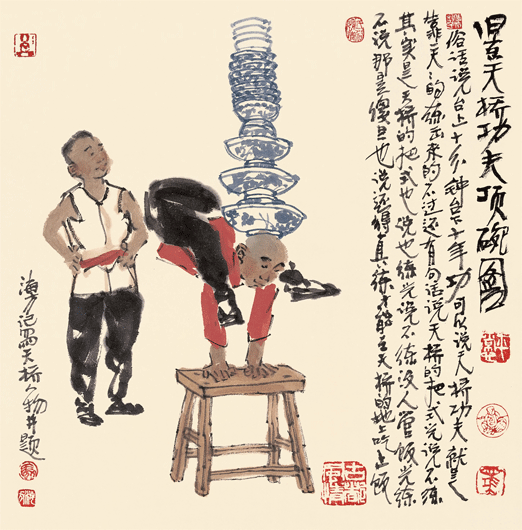 天桥功夫顶碗图
俗话说台上十分钟台下十年功可以说天桥功夫就是
靠天天的练出来的不过还有句话说天桥的把式光说不练
其实是天桥的把式也说也练光说不练没人管饭光练
不说那是傻旦也说还得真练才能在天桥的地上吃上饭
海方记写天桥人物并题
古都风情